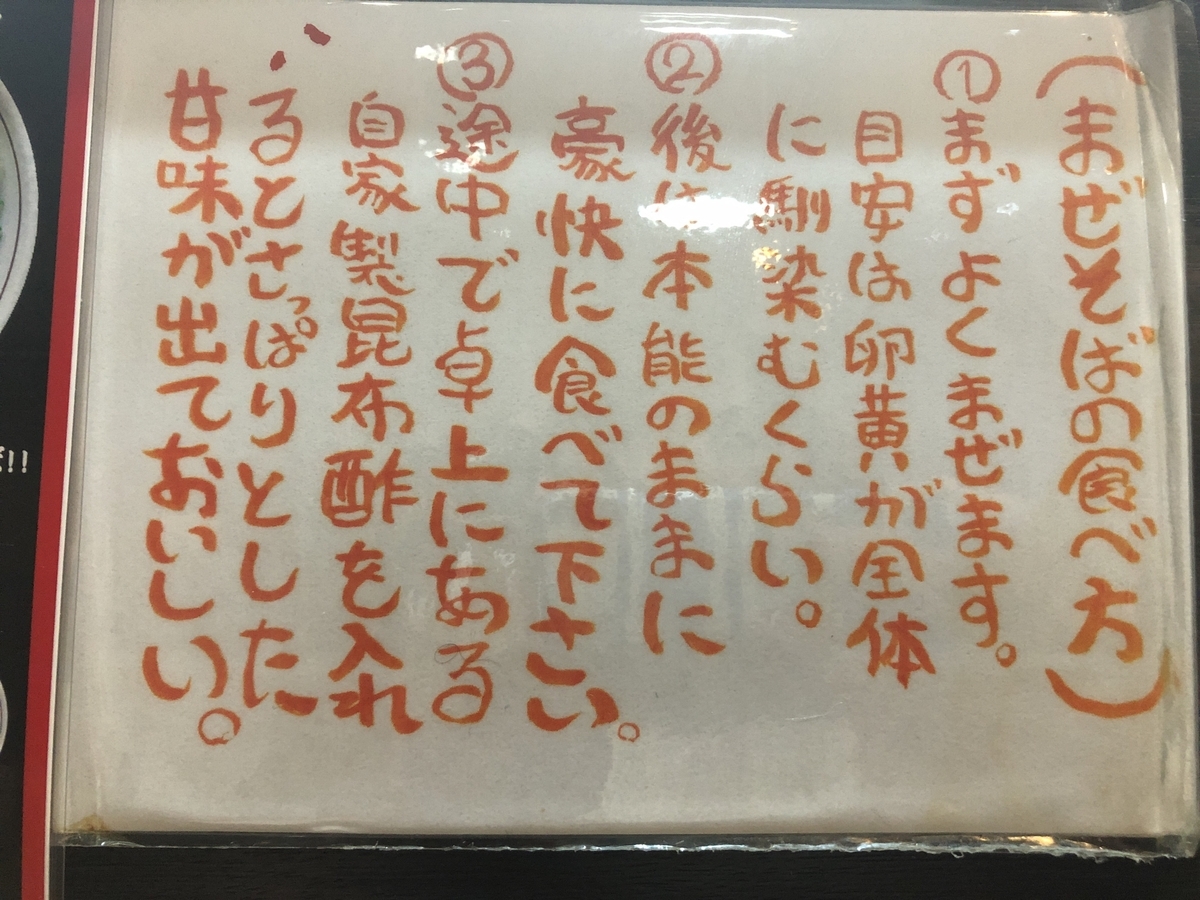 (まぜそばの食べ方)
①まずよくまぜます。
目安は卵黄が全体
に馴染むくらい。
②後は本能のままに
豪快に食べて下さい。
③途中で卓上にある
自家製昆布酢を入れ
るとさっぱりとした
甘味が出ておいしい。
!!